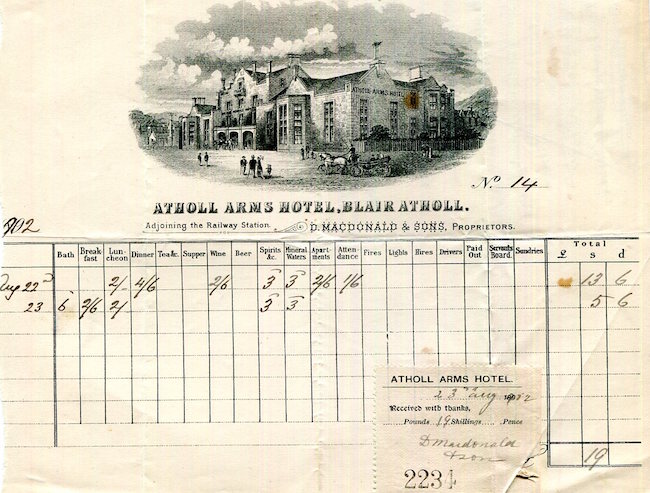 ATHOLL ARMS HOTEL
No 14
ATHOLL ARMS HOTEL, BLAIR ATHOLL.
902
Adjoining the Railway Station. D. MACDONALD & SONS, PROPRIETORS.
Bath Breakfast Luncheon Dinner Tea &c. Supper Wine Beer Spirits &c. Mineral Waters Apartments Attendance Fires Lights Hires Drivers Paid Out Servants Board. Sundries Total £ s d
Aug 22d 2/- 4/6 2/6 3 3 2/6 1/6 13 6
23 6 2/6 2/- 3 3 5 6
19
ATHOLL ARMS HOTEL.
23d Aug 1902
Received with thanks,
Pounds 19 Shillings Pence
D Macdonald
& Son
2234